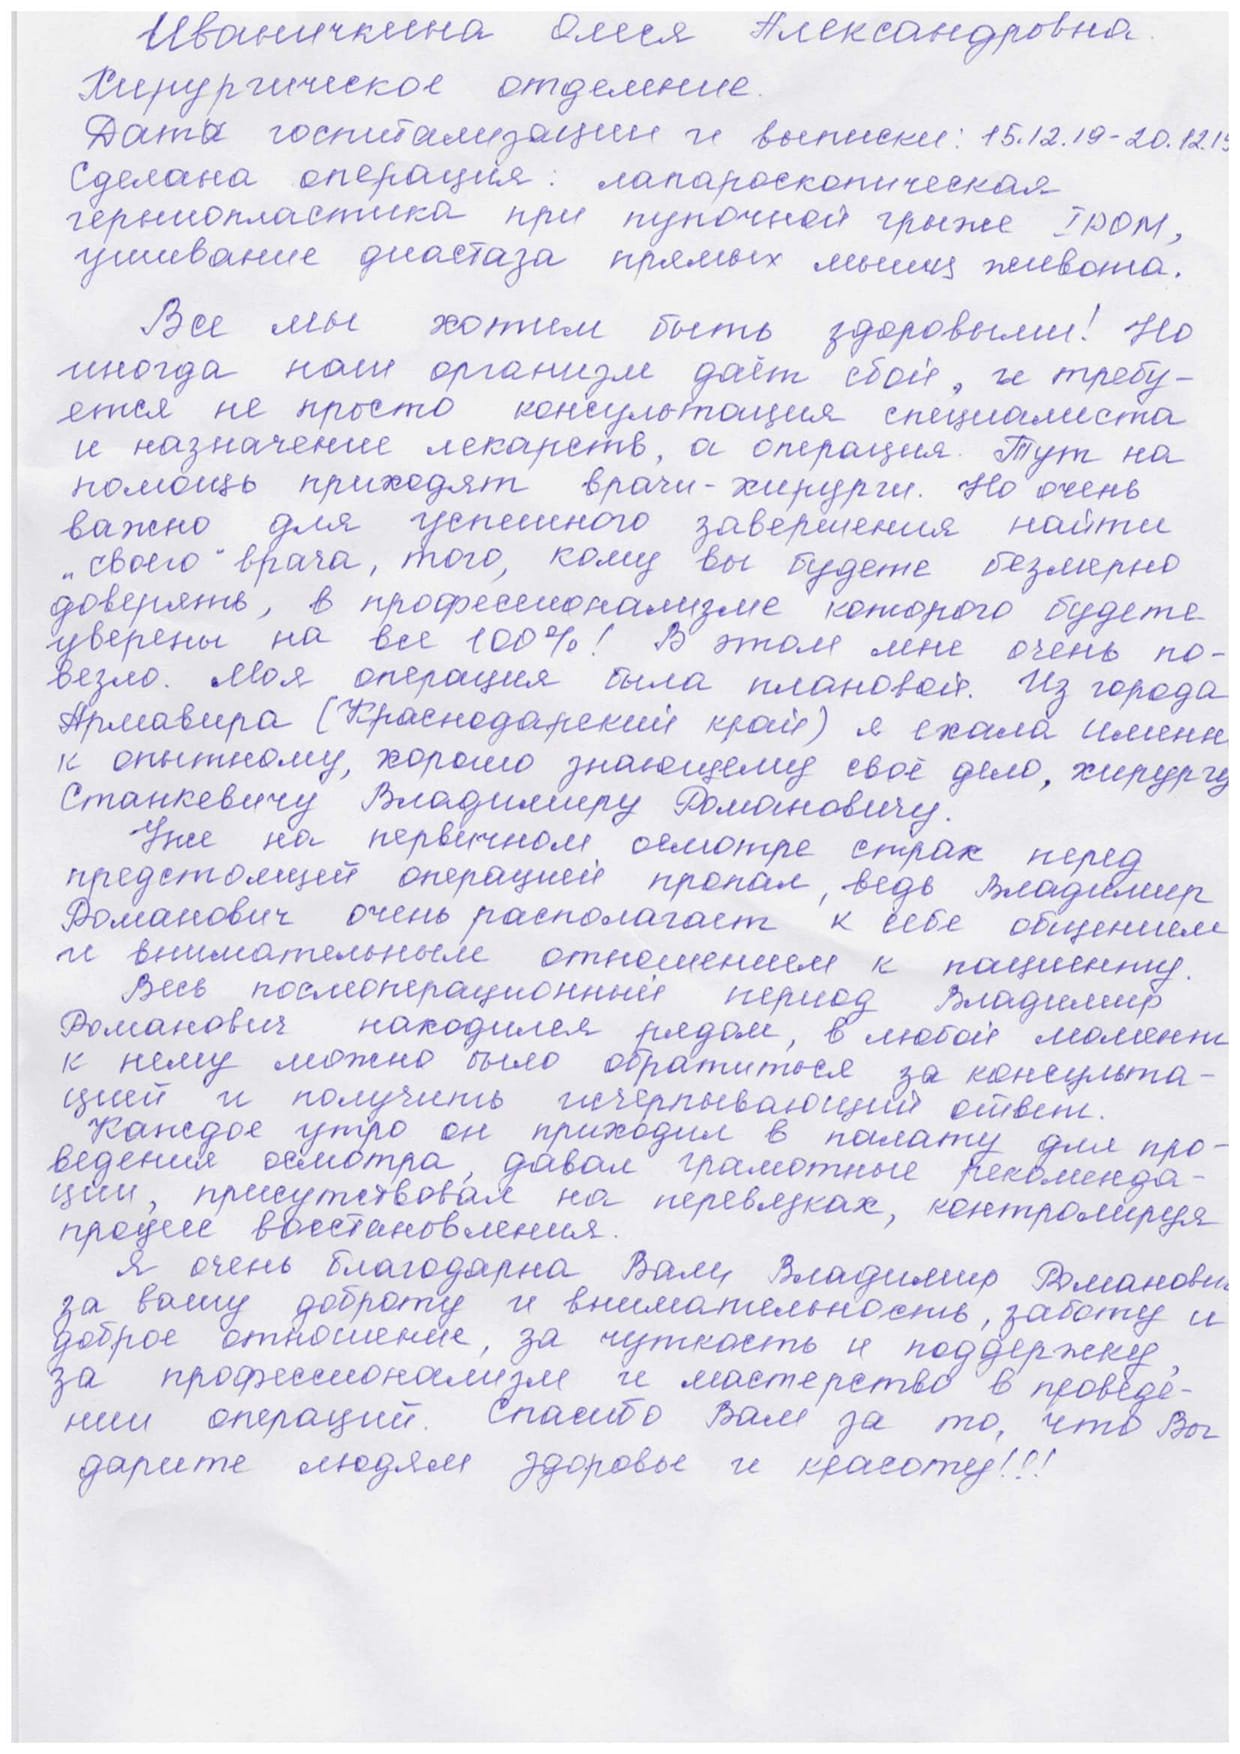 Иваничкина Олеся Александровна.
Хирургическое отделение.
Дата госпитализации и выписки: 15.12.19-20.12.19
Сделана операция: лапароскопическая
герниопластика при пупочной грыже IPOM,
ушивание диастаза прямых мышц живота.
Все мы хотим быть здоровыми! Но
иногда наш организм даёт сбой, и требу-
ется не просто консультация специалиста
и назначение лекарств, а операция. Тут на
помощь приходят врачи-хирурги. Но очень
важно для успешного завершения найти
„своего" врача, того, кому вы будете безмерно
доверять, в профессионализме которого будете
уверены на все 100%! В этом мне очень по-
везло. Моя операция была плановой. Из города
Армавира (Краснодарский край) я ехала именн
к опытному, хорошо знающему своё дело, хирургу
Станкевичу Владимиру Романовичу.
Уже на первичном осмотре страх перед
предстоящей операцией пропал, ведь Владимир
Романович очень располагает к себе общением
и внимательным отношением к пациенту.
Весь послеоперационный период Владимир
Романович находился рядом, в любой момент
к нему можно было обратиться за консульта-
цией и получить исчерпывающий ответ.
Каждое утро он приходил в палату для про-
ведения осмотра, давал грамотные рекоменда-
ции, присутствовал на перевязках, контролируя
процесс восстановления.
Я очень благодарна Вам, Владимир Романович
за вашу доброту и внимательность, заботу и
доброе отношение, за чуткость и поддержку,
за профессионализм и мастерство в проведе-
нии операций. Спасибо Вам за то, что Вы
дарите людям здоровье и красоту!!!